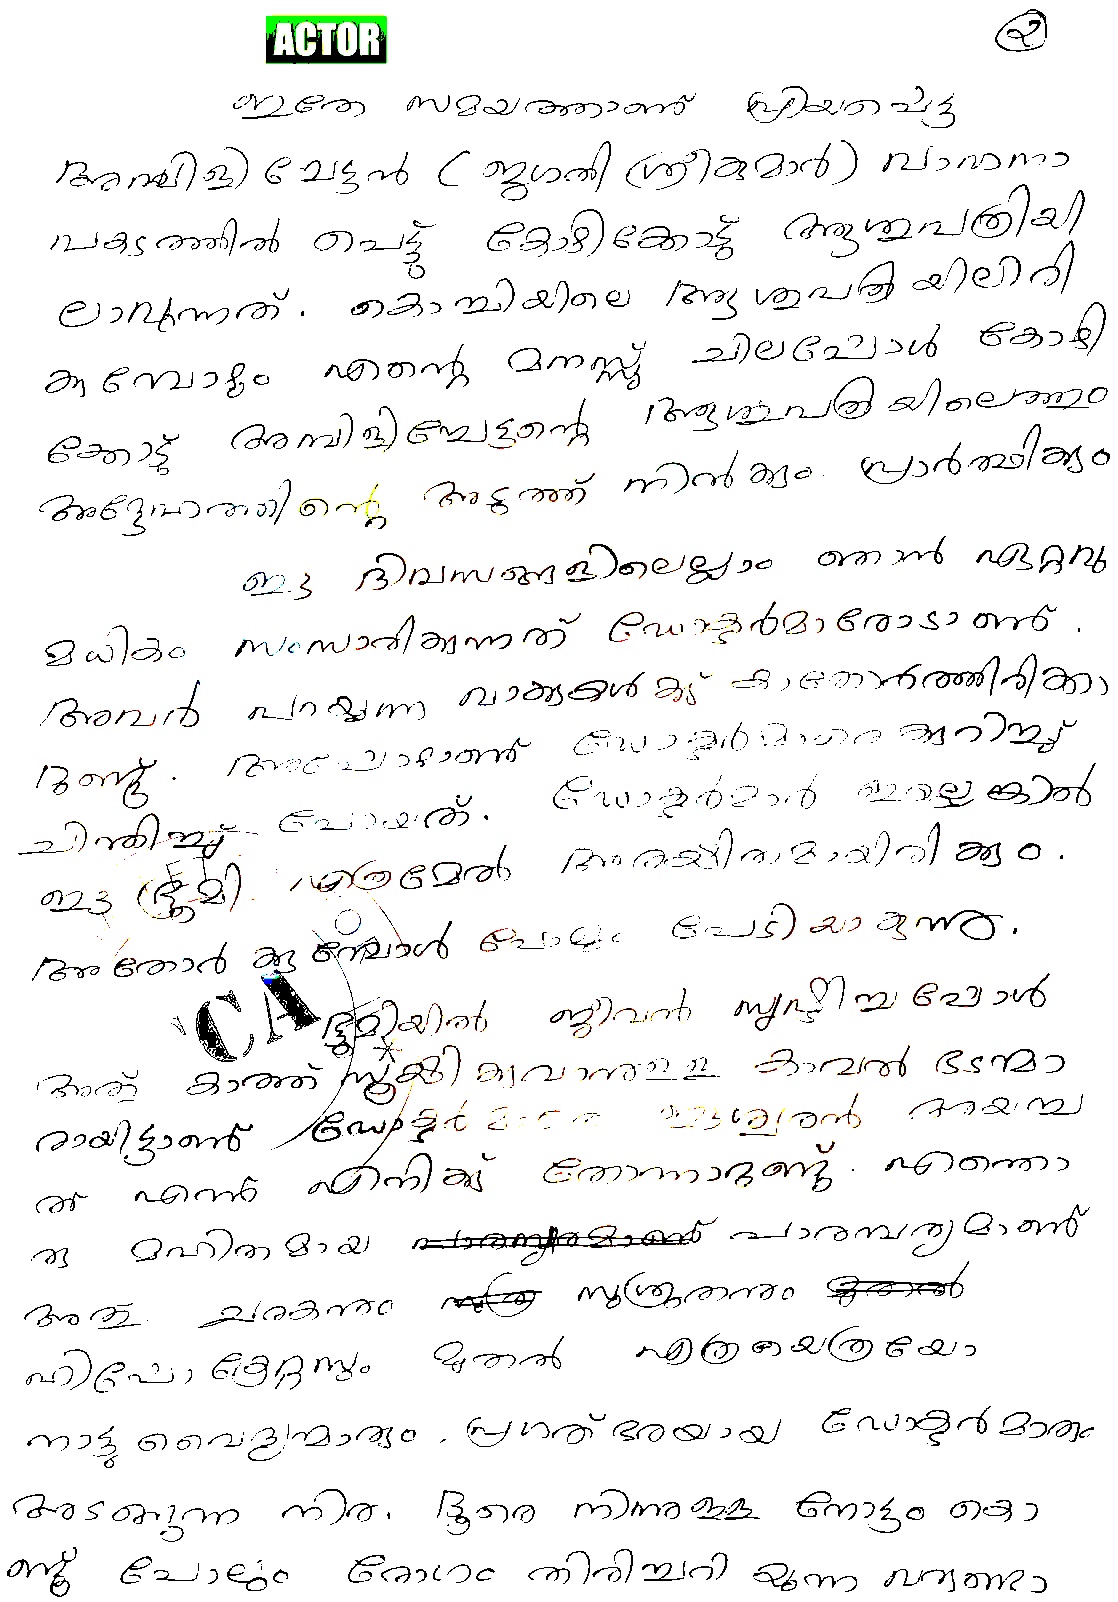 ACTOR
൨
ഇതേ സമയത്താണ് പ്രിയപ്പെട്ട
അമ്പിളി ചേട്ടൻ (ജഗതി ശ്രീകുമാർ) വാഹനാ
പകടത്തിൽ പെട്ട് കോഴിക്കോട്ട് ആശുപത്രിയി
ലാവുന്നത്. കൊച്ചിയിലെ ആശുപത്രിയിലിരി
കുമ്പോഴും എന്റെ മനസ്സ് ചിലപ്പോൾ കോഴി
ക്കോട്ട് അമ്പിളിച്ചേട്ടന്റെ ആശുപത്രിയിലെത്തും
അദ്ദേഹത്തിന്റെ അടുത്ത് നിൽക്കും. പ്രാർത്ഥിക്കും
ഈ ദിവസങ്ങളിലെല്ലാം ഞാൻ ഏറ്റവു
മധികം സംസാരിക്കുന്നത് ഡോക്ടർമാരോടാണ്.
അവർ പറയുന്ന വാക്കുകൾക്ക് കാതോർത്തിരിക്കാ
റുണ്ട്. അപ്പോഴാണ് ഡോക്ടർമാരെക്കുറിച്ച്
ചിന്തിച്ച് പോയത്. ഡോക്ടർമാർ ഇല്ലെങ്കിൽ
ഈ ഭൂമി എത്രമേൽ അരക്ഷിതമായിരിക്കും.
അതോർക്കുമ്പോൾ പോലും പേടിയാകുന്നു.
'CA
ഭൂമിയിൽ ജീവൻ സൃഷ്ടിച്ചപ്പോൾ
അത് കാത്ത് സൂക്ഷിക്കുവാനുള്ള കാവൽ ഭടന്മാ
രായിട്ടാണ് ഡോക്ടർമാരെ ഈശ്വരൻ അയച്ച
ത് എന്ന് എനിക്ക് തോന്നാറുണ്ട്. എന്തൊ
രു മഹിതമായ പാരമ്പര്യമാണ്
അത് ചരകനും സുശ്രുതനും
ഹിപ്പോക്രേറ്റസും മുതൽ എത്രയെത്രയോ
നാട്ടുവൈദ്യന്മാരും. പ്രഗത്ഭരായ ഡോക്ടർമാരും
അടങ്ങുന്ന നിര. ദൂരെ നിന്നുള്ള നോട്ടം കൊ
ണ്ട് പോലും രോഗം തിരിച്ചറിയുന്ന